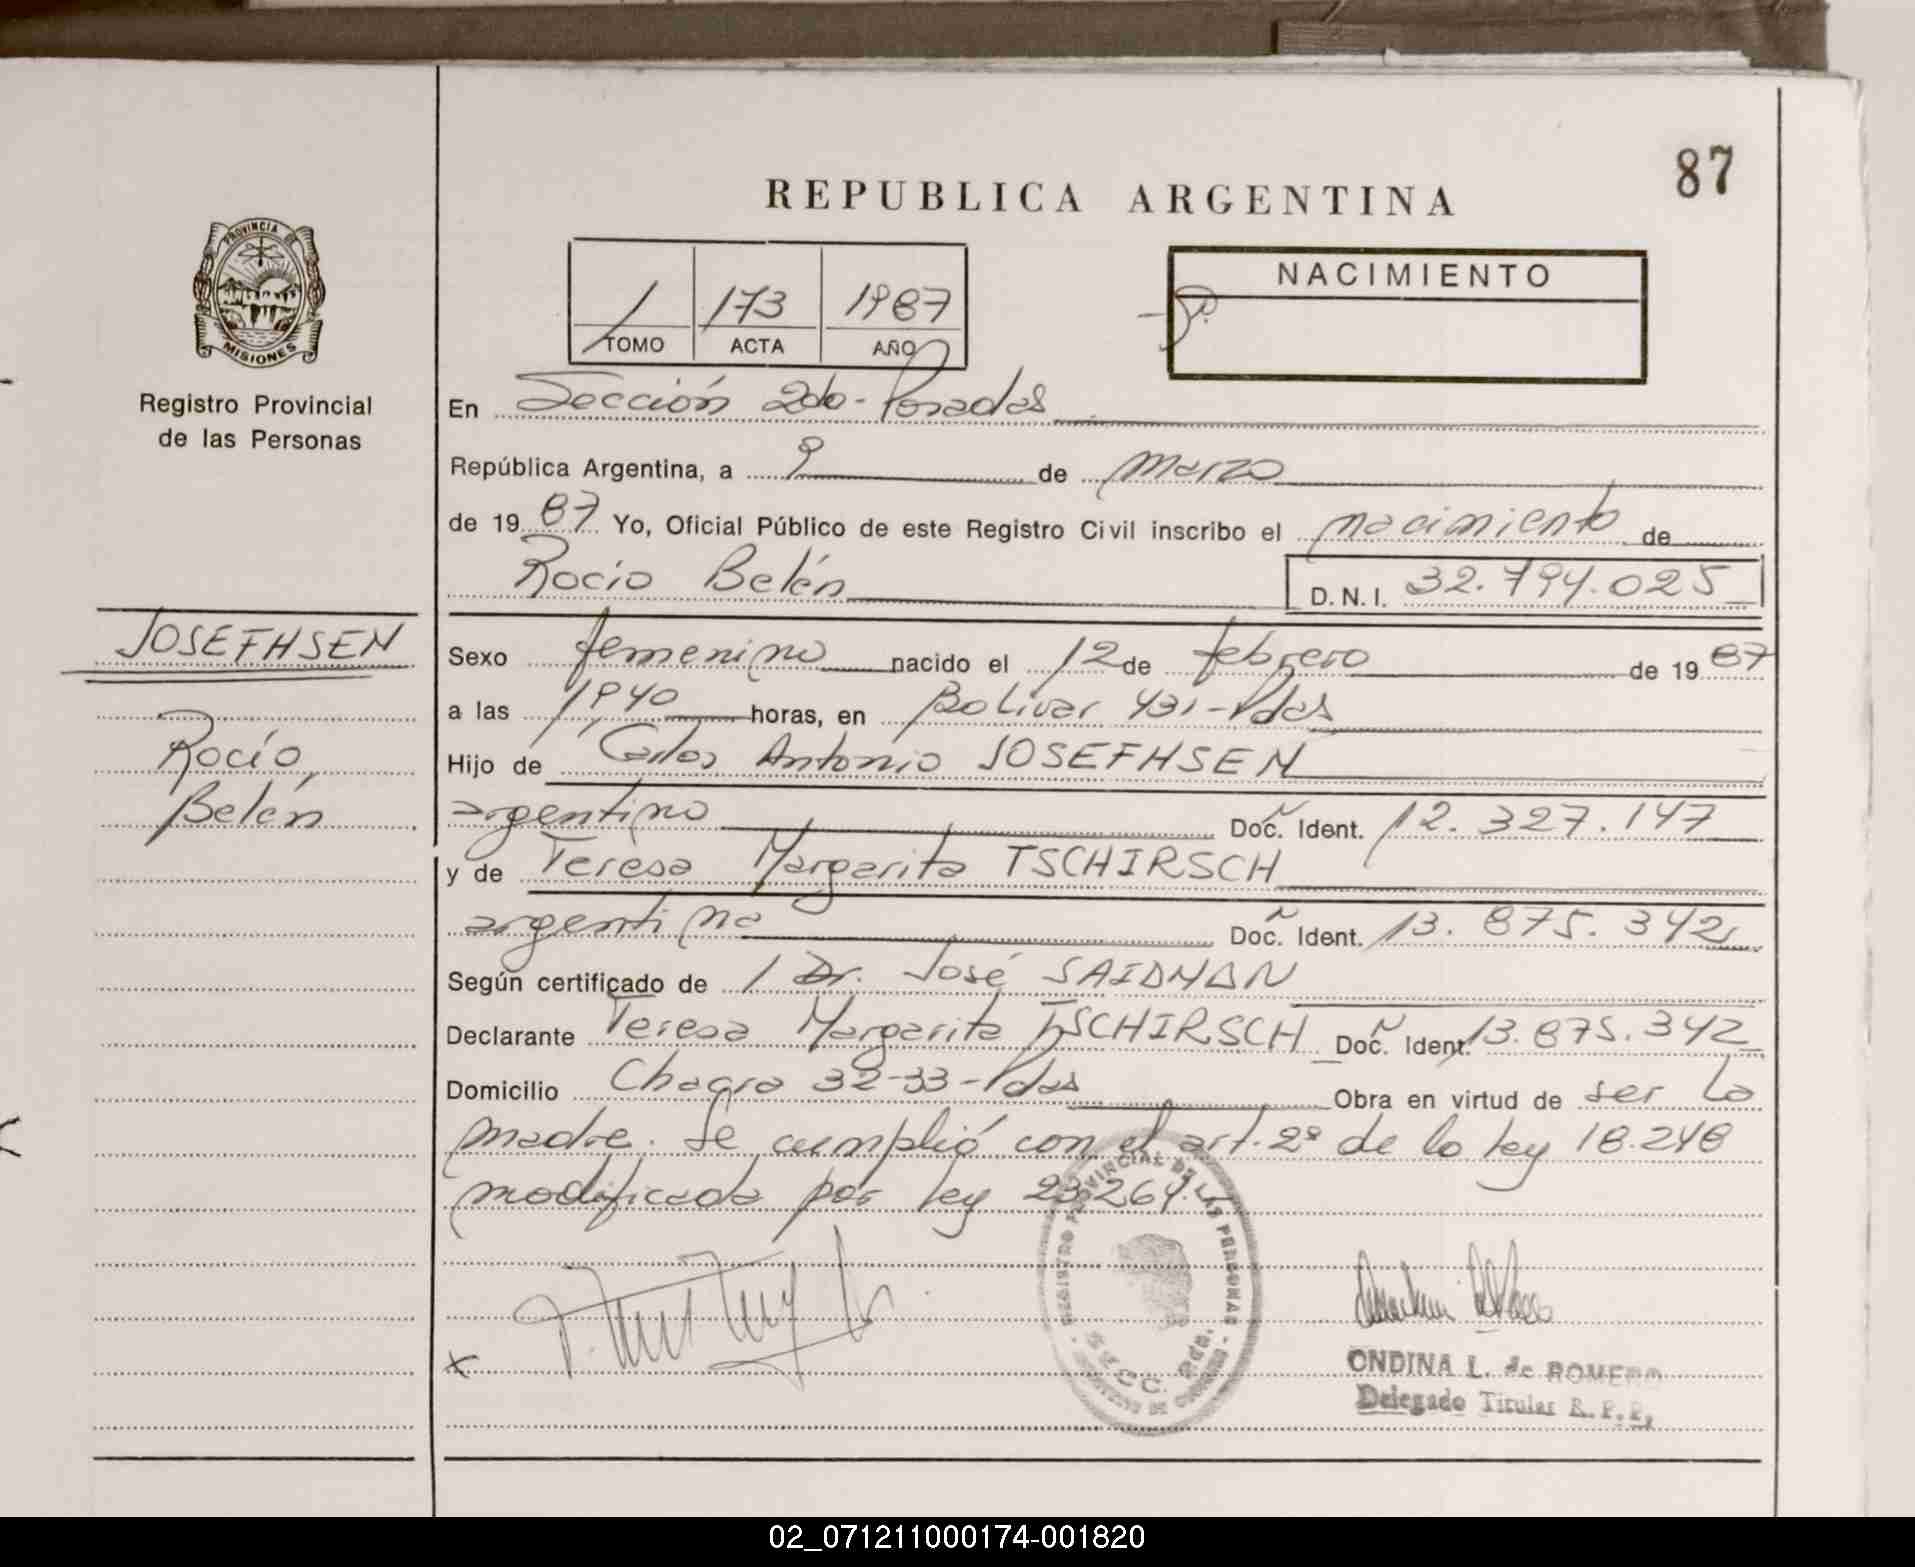 87
REPUBLICA ARGENTINA
PROVINCIA DE
MISIONES
Registro Provincial
de las Personas
1 173 1987
TOMO ACTA AÑO
NACIMIENTO
En Sección 2do - Posadas
República Argentina, a 9 de marzo
de 1987 Yo, Oficial Público de este Registro Civil inscribo el nacimiento de
Rocío Belén D.N.I. 32.794.025
JOSEFHSEN
Rocío
Belén
Sexo femenino nacido el 12 de febrero de 1987
a las 1940 horas, en Bolivar 431-Pdas
Hijo de Carlos Antonio JOSEFHSEN
argentino Doc. Ident. 12.327.147
y de Teresa Margarita TSCHIRSCH
argentina Doc. Ident. 13.875.342
Según certificado de / Dr. José SAIDMAN
Declarante Teresa Margarita TSCHIRSCH Doc. Ident. 13.875.342
Domicilio Chacra 32-33-Pdas Obra en virtud de ser la
madre. Se cumplió con el art. 2º de la ley 18.248
modificada por ley 23.264.-
REGISTRO PROVINCIAL DE LAS PERSONAS
SECC. 2da.
x
ONDINA L. de ROMERO
Delegado Titular R. P. P.
02_071211000174-001820